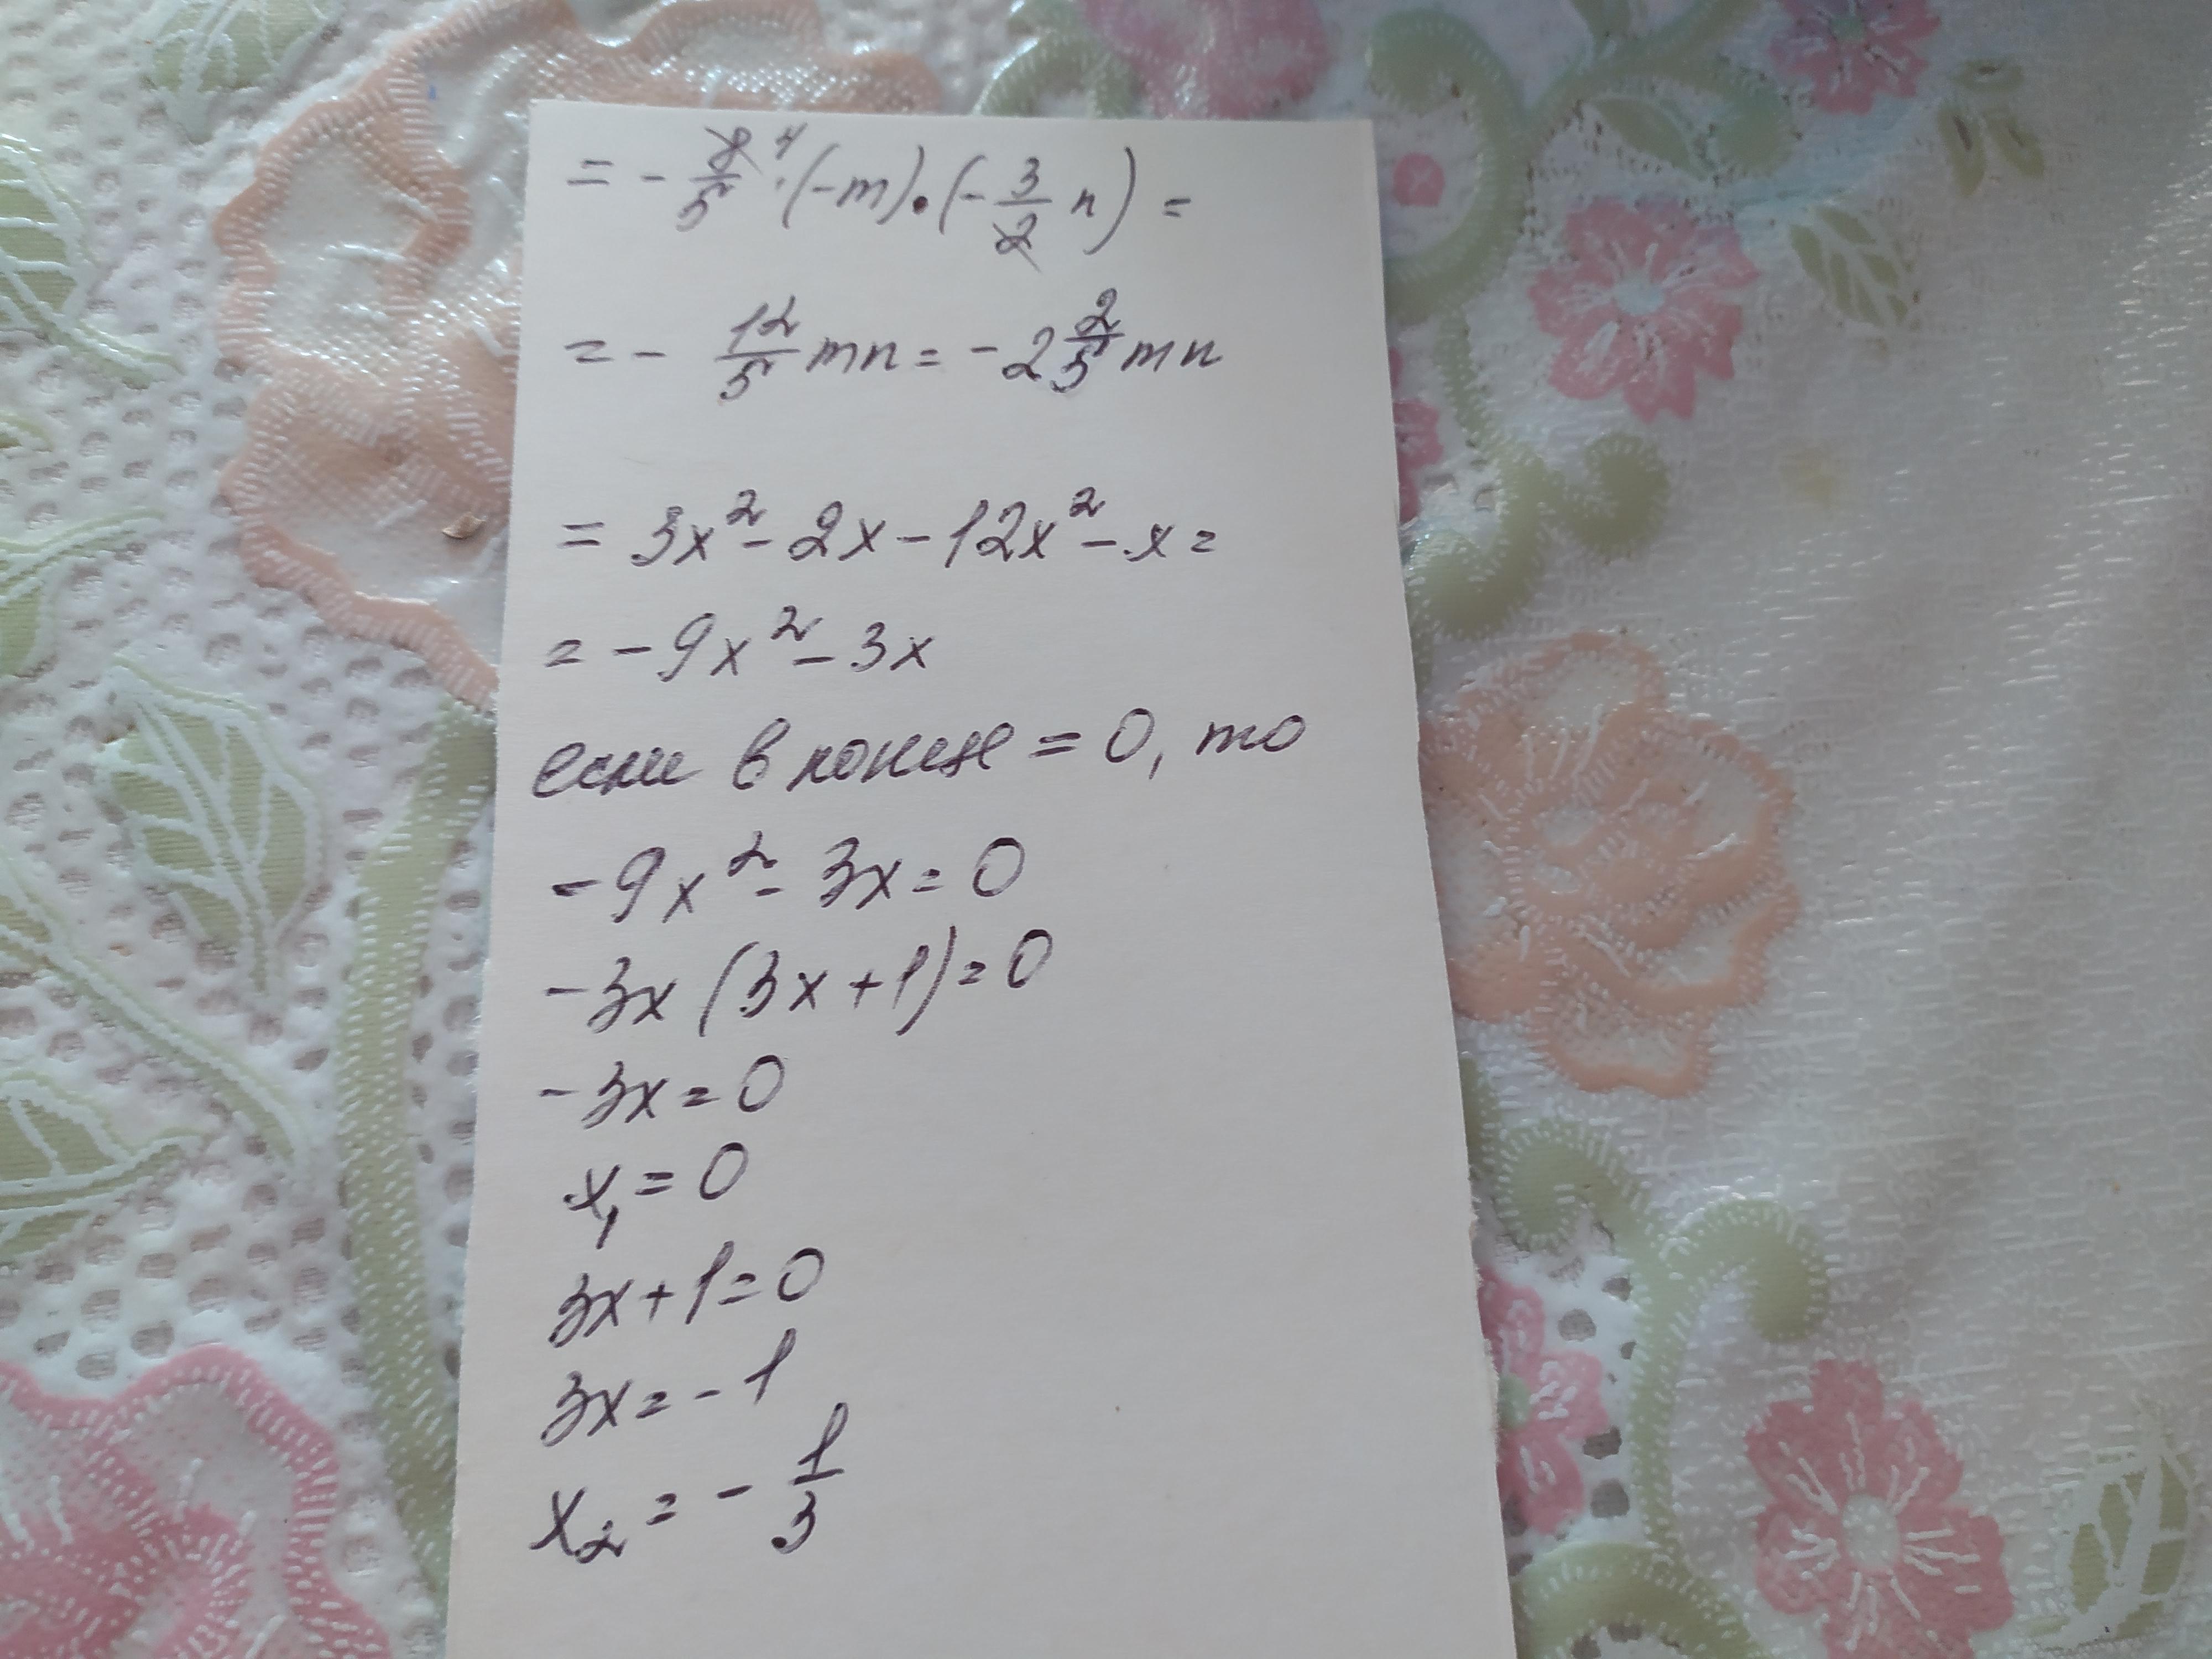 = - 8/5 4 · (-m) · (- 3/2 n) =
= - 12/5 mn = - 2 2/5 mn
= 3x² - 2x - 12x² - x =
= - 9x² - 3x
если в конце = 0, то
- 9x² - 3x = 0
- 3x (3x + 1) = 0
- 3x = 0
x₁ = 0
3x + 1 = 0
3x = - 1
x₂ = - 1/3